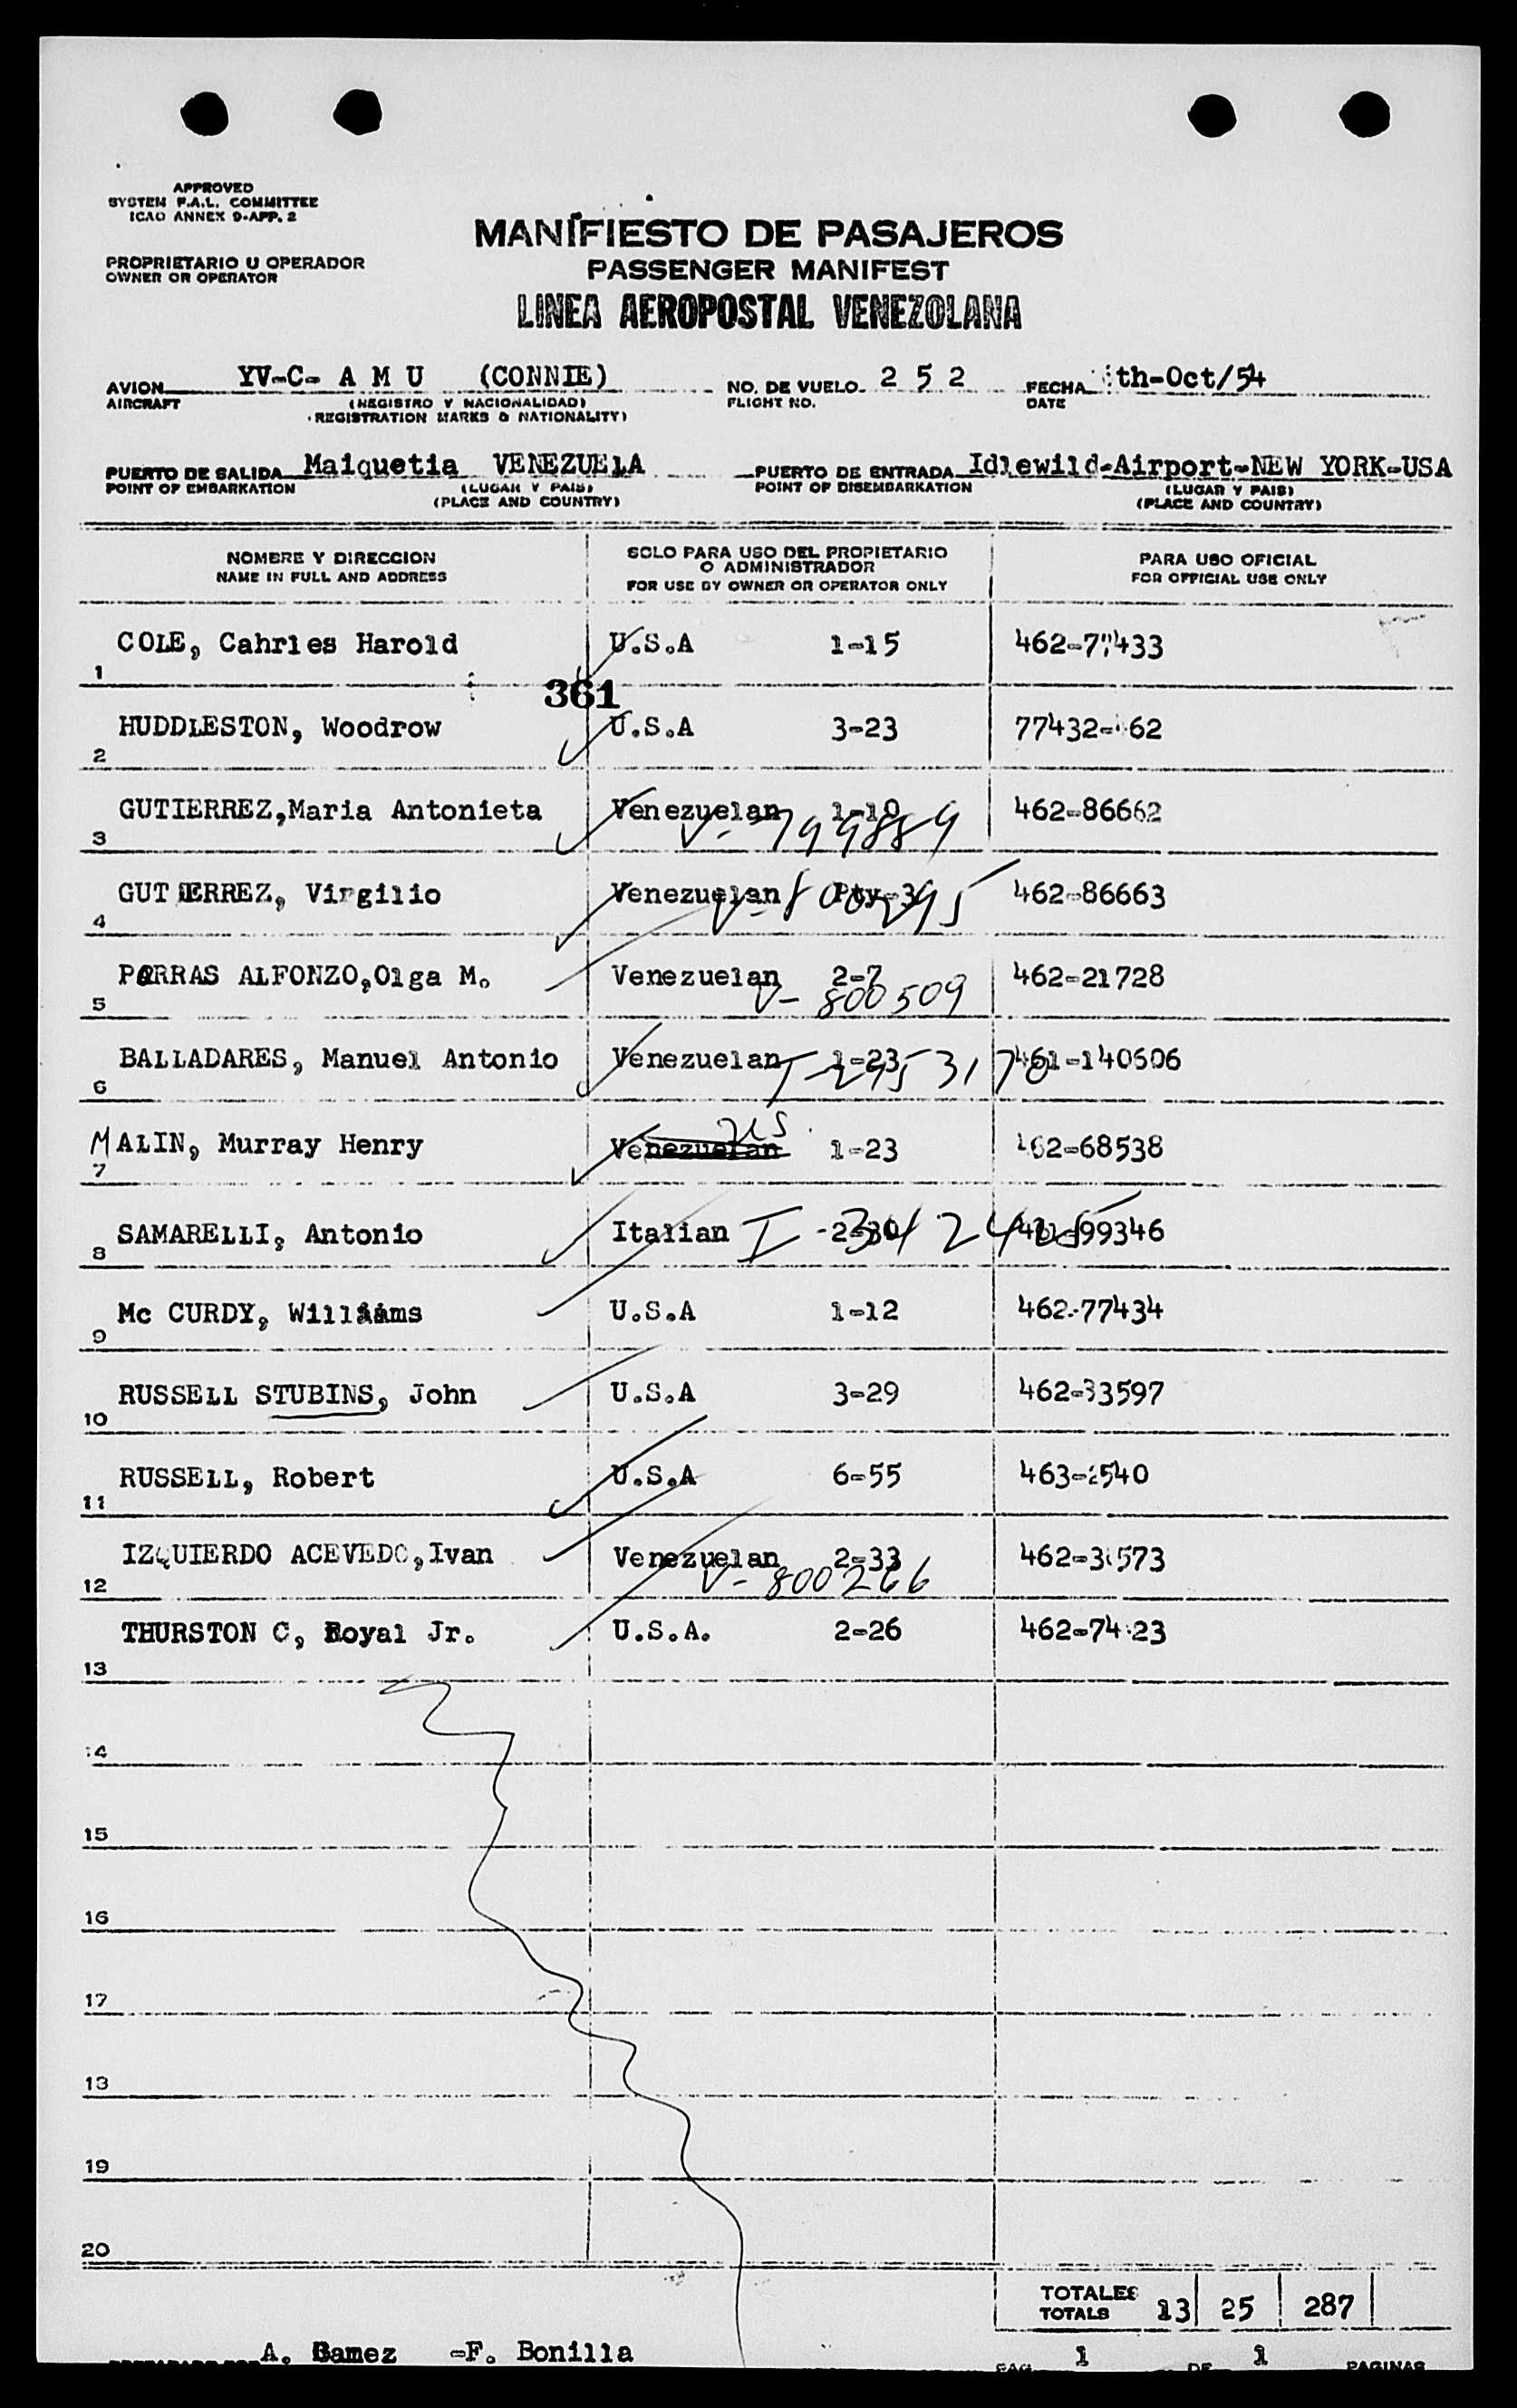 APPROVED
SYSTEM F.A.L. COMMITTEE
ICAO ANNEX 9-APP. 2
MANIFIESTO DE PASAJEROS
PROPRIETARIO U OPERADOR
OWNER OR OPERATOR
PASSENGER MANIFEST
LINEA AEROPOSTAL VENEZOLANA
AVION YV-C- A M U (CONNIE) NO. DE VUELO 2 5 2 FECHA th-Oct/54
AIRCRAFT (REGISTRO Y NACIONALIDAD) FLIGHT NO. DATE
REGISTRATION MARKS & NATIONALITY)
PUERTO DE SALIDA Maiquetia VENEZUELA PUERTO DE ENTRADA Idlewild-Airport-NEW YORK-USA
POINT OF EMBARKATION (LUGAR Y PAIS) POINT OF DISEMBARKATION (LUGAR Y PAIS)
(PLACE AND COUNTRY) (PLACE AND COUNTRY)
NOMBRE Y DIRECCION SOLO PARA USO DEL PROPIETARIO O ADMINISTRADOR PARA USO OFICIAL
NAME IN FULL AND ADDRESS FOR USE BY OWNER OR OPERATOR ONLY FOR OFFICIAL USE ONLY
COLE, Cahrles Harold U.S.A 1-15
1
361
HUDDLESTON, Woodrow U.S.A 3-23
2
GUTIERREZ,Maria Antonieta Venezuelan 1-10 462-86662
3 V-799889
GUTIERREZ, Virgilio Venezuelan 462-86663
4
PARRAS ALFONZO,Olga M. Venezuelan 2-7 462-21728
5 V-800509
BALLADARES, Manuel Antonio Venezuelan 1-23
6
us.
MALIN, Murray Henry Venezuelan 1-23 462-68538
7
SAMARELLI, Antonio Italian
8
Mc CURDY, Williams U.S.A 1-12 462-77434
9
RUSSELL STUBINS, John U.S.A 3-29 462-33597
10
RUSSELL, Robert U.S.A 6-55
11
IZQUIERDO ACEVEDO,Ivan Venezuelan 2-33
12 V-800266
THURSTON C, Royal Jr. U.S.A. 2-26
13
14
15
16
17
18
19
20
TOTALES
TOTALS 13 25 287
A. Gamez -F. Bonilla
PAG. 1 DE 1 PAGINAS